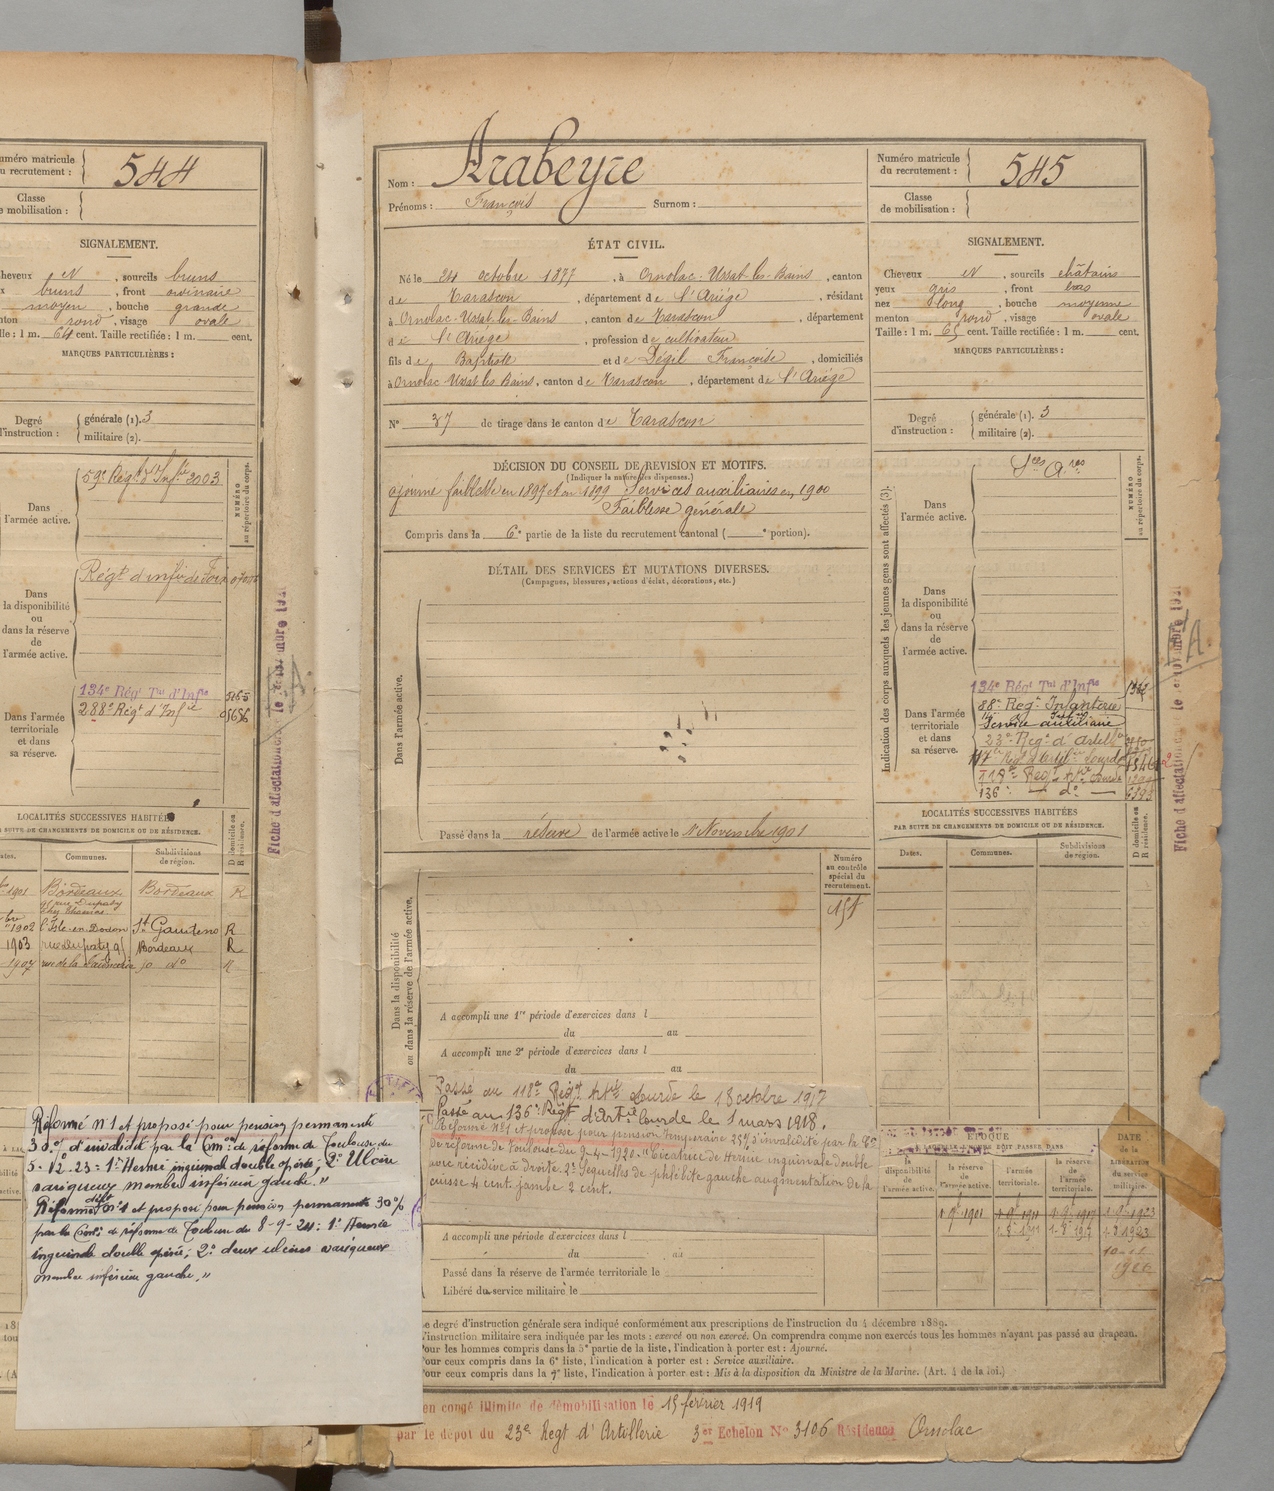 uméro matricule
u recrutement :
544
Classe
e mobilisation :
SIGNALEMENT.
heveux N , sourcils bruns
x bruns , front ordinaire
moyen , bouche grande
nton rond , visage ovale
Taille : 1 m. 64 cent. Taille rectifiée : 1 m. cent.
MARQUES PARTICULIÈRES :
Degré
d'instruction :
générale (1). 3
militaire (2).
NUMÉRO
au répertoire du corps.
59e Régt d'Infie 2003
Dans
l'armée active.
Régt d'infie de Foix
Dans
la disponibilité
ou
dans la réserve
de
l'armée active.
134e Régt Tal d'Infie
288e Régt d'Infie
Dans l'armée
territoriale
et dans
sa réserve.
LOCALITÉS SUCCESSIVES HABITÉES
PAR SUITE DE CHANGEMENTS DE DOMICILE OU DE RÉSIDENCE.
ates.
Communes.
Subdivisions
de région.
D domicile ou
R résidence.
1901 Bordeaux Bordeaux R
1902 l'Isle-en-Dodon St Gaudens R
1903 rue Dupaty 95 Bordeaux R
1907 R
Réformé n°1 et proposé pour pension permanente
30% d'invalidité par la Con de réforme de Toulouse du
5-12-23 = 1° Hernie inguinale double opérée, 2° Ulcère
variqueux membre inférieur gauche."
Réformé déft n°1 et proposé pour pension permanente 30%
par la Con de réforme de Toulouse du 8-9-24 : 1° Hernie
inguinale double opérée; 2° deux ulcères variqueux
membre inférieur gauche."
Nom : Arabeyre
Prénoms : François Surnom :
Numéro matricule
du recrutement :
545
Classe
de mobilisation :
ÉTAT CIVIL.
Né le 24 octobre 1877 , à Ornolac-Ussat-les-Bains , canton
de Tarascon , département de l'Ariège , résidant
à Ornolac-Ussat-les-Bains , canton de Tarascon , département
de l'Ariège , profession de cultivateur
fils de Baptiste et de Dégil Françoise , domiciliés
à Ornolac Ussat les Bains , canton de Tarascon , département de l'Ariège
N° 37 de tirage dans le canton de Tarascon
SIGNALEMENT.
Cheveux N , sourcils châtains
yeux gris , front bas
nez long , bouche moyenne
menton rond , visage ovale
Taille : 1 m. 65 cent. Taille rectifiée : 1 m. cent.
MARQUES PARTICULIÈRES :
Degré
d'instruction :
générale (1). 3
militaire (2).
DÉCISION DU CONSEIL DE REVISION ET MOTIFS.
(Indiquer la nature des dispenses.)
ajourné faiblesse en 1897 et en 1899 Services auxiliaires en 1900
Faiblesse générale
Compris dans la 6e partie de la liste du recrutement cantonal ( e portion).
DÉTAIL DES SERVICES ET MUTATIONS DIVERSES.
(Campagnes, blessures, actions d'éclat, décorations, etc.)
Dans l'armée active.
Passé dans la réserve de l'armée active le 1er Novembre 1901
Numéro
au contrôle
spécial du
recrutement.
Dans la disponibilité
ou dans la réserve de l'armée active.
A accompli une 1re période d'exercices dans l
du au
A accompli une 2e période d'exercices dans l
du au
Passé au 118e Régt Artie Lourde le 18 octobre 1917
Passé au 136e Régt d'Artie lourde le 1 mars 1918.
Réformé n°1 et proposé pour pension temporaire 25% d'invalidité par la Con
de réforme de Toulouse du 9-4-1920 - "Cicatrice de Hernie inguinale double
avec récidive à droite. 2° Séquelles de phlébite gauche augmentation de la
cuisse 4 cent. jambe 2 cent.
A accompli une période d'exercices dans l
du au
Passé dans la réserve de l'armée territoriale le
Libéré du service militaire le
Indication des corps auxquels les jeunes gens sont affectés (3).
Sces Ares
NUMÉRO
au répertoire du corps.
Dans
l'armée active.
Dans
la disponibilité
ou
dans la réserve
de
l'armée active.
Dans l'armée
territoriale
et dans
sa réserve.
134e Régt Tal d'Infie
88e Régt Infanterie
Service auxiliaire
23e Régt d'Artille
117e Régt d'Artie Lourde
118e Régt Artie Lourde
136e — do —
LOCALITÉS SUCCESSIVES HABITÉES
PAR SUITE DE CHANGEMENTS DE DOMICILE OU DE RÉSIDENCE.
Dates.
Communes.
Subdivisions
de région.
D domicile ou
R résidence.
Fiche d'affectation
ÉPOQUE
la
disponibilité
de
l'armée active.
la réserve
de
l'armée active.
l'armée
territoriale.
la réserve
de
l'armée
territoriale.
DATE
de la
LIBÉRATION
du service
militaire.
e degré d'instruction générale sera indiqué conformément aux prescriptions de l'instruction du 4 décembre 1889.
'instruction militaire sera indiquée par les mots : exercé ou non exercé. On comprendra comme non exercés tous les hommes n'ayant pas passé au drapeau.
our les hommes compris dans la 5e partie de la liste, l'indication à porter est : Ajourné.
our ceux compris dans la 6e liste, l'indication à porter est : Service auxiliaire.
our ceux compris dans la 7e liste, l'indication à porter est : Mis à la disposition du Ministre de la Marine. (Art. 4 de la loi.)
en congé illimité de démobilisation le 15 février 1919
par le dépot du 23e Régt d'Artillerie 3er Echelon N° 3106 Résidence Ornolac